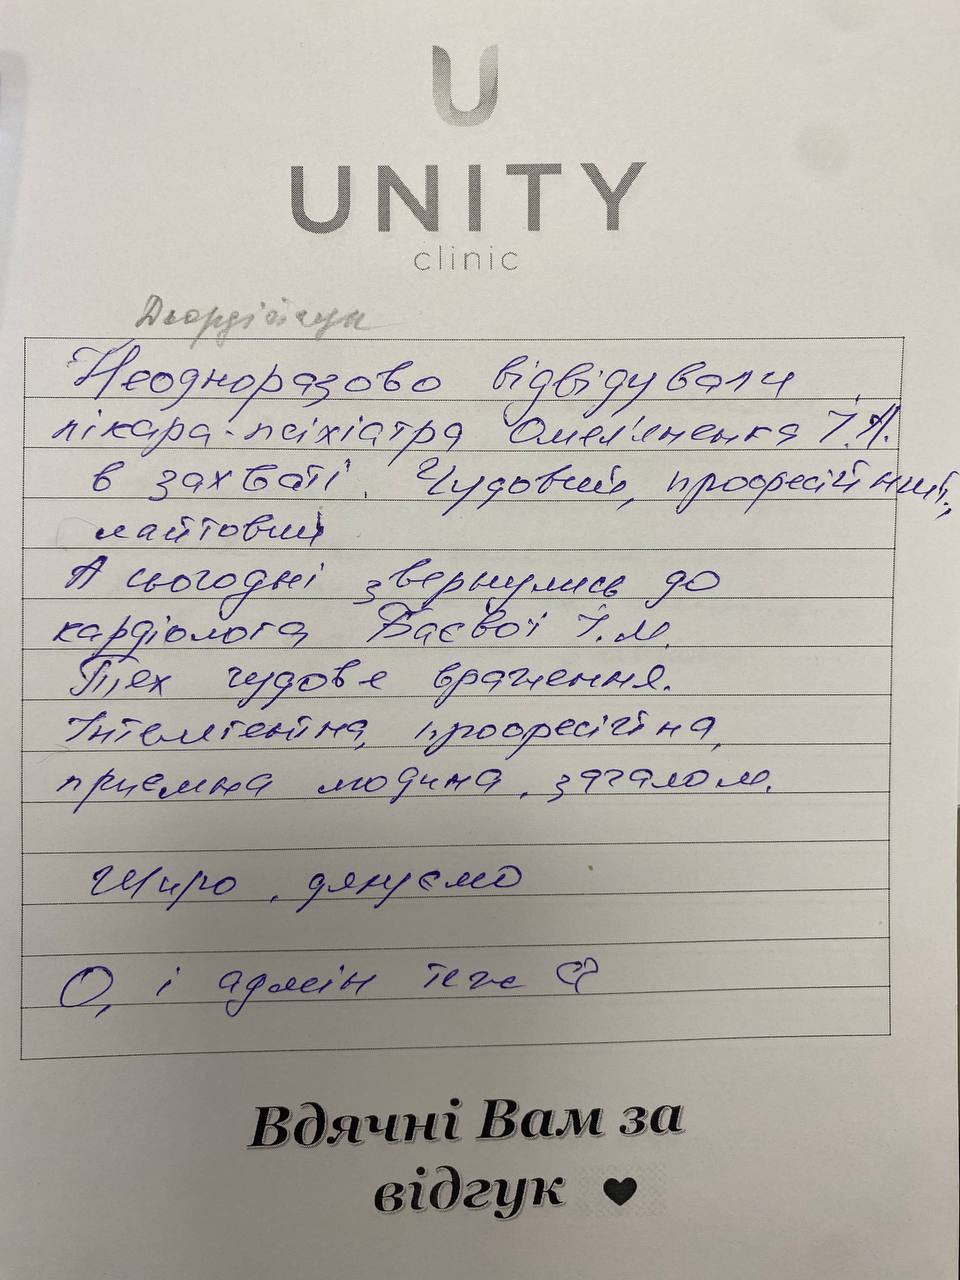 U
UNITY
clinic
Неодноразово відвідували
лікаря-психіатра Омел'яненка І.А.
в захваті. Чудовий, професійний,
лайтовий
А сьогодні звернулись до
кардіолога Баєвої І.М.
Теж чудове враження.
Інтелігентна, професійна,
приємна людина, загалом.
Щиро дякуємо
О, і адмін теж
Вдячні Вам за
відгук ♥